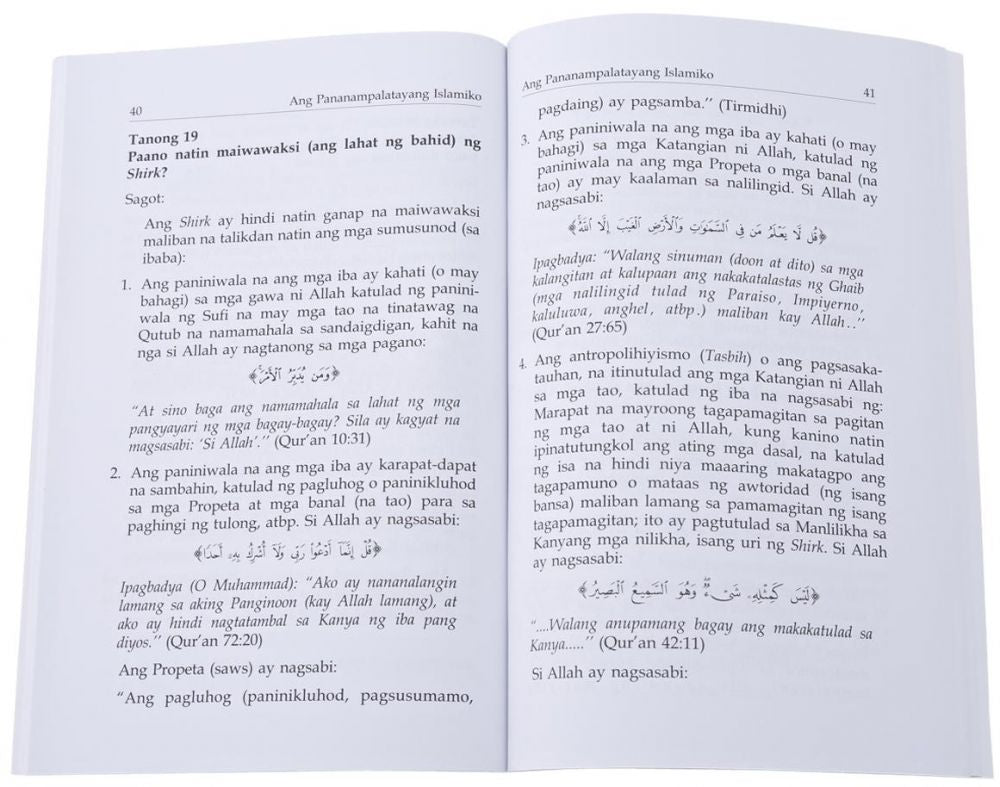 40
Ang Pananampalatayang Islamiko
Tanong 19
Paano natin maiwawaksi (ang lahat ng bahid) ng
Shirk?
Sagot:
Ang Shirk ay hindi natin ganap na maiwawaksi
maliban na talikdan natin ang mga sumusunod (sa
ibaba):
1. Ang paniniwala na ang mga iba ay kahati (o may
bahagi) sa mga gawa ni Allah katulad ng panini-
wala ng Sufi na may mga tao na tinatawag na
Qutub na namamahala sa sandaigdigan, kahit na
nga si Allah ay nagtanong sa mga pagano:
﴿وَمَن يُدَبِّرُ ٱلْأَمْرَ﴾
“At sino baga ang namamahala sa lahat ng mga
pangyayari ng mga bagay-bagay? Sila ay kagyat na
magsasabi: ‘Si Allah’.’’ (Qur’an 10:31)
2. Ang paniniwala na ang mga iba ay karapat-dapat
na sambahin, katulad ng pagluhog o paninikluhod
sa mga Propeta at mga banal (na tao) para sa
paghingi ng tulong, atbp. Si Allah ay nagsasabi:
﴿قُلْ إِنَّمَآ أَدْعُوا۟ رَبِّى وَلَآ أُشْرِكُ بِهِۦٓ أَحَدًا﴾
Ipagbadya (O Muhammad): “Ako ay nananalangin
lamang sa aking Panginoon (kay Allah lamang), at
ako ay hindi nagtatambal sa Kanya ng iba pang
diyos.’’ (Qur’an 72:20)
Ang Propeta (saws) ay nagsabi:
“Ang pagluhog (paninikluhod, pagsusumamo,
Ang Pananampalatayang Islamiko
41
pagdaing) ay pagsamba.’’ (Tirmidhi)
3. Ang paniniwala na ang mga iba ay kahati (o may
bahagi) sa mga Katangian ni Allah, katulad ng
paniniwala na ang mga Propeta o mga banal (na
tao) ay may kaalaman sa nalilingid. Si Allah ay
nagsasabi:
﴿قُل لَّا يَعْلَمُ مَن فِى ٱلسَّمَٰوَٰتِ وَٱلْأَرْضِ ٱلْغَيْبَ إِلَّا ٱللَّهُ﴾
Ipagbadya: “Walang sinuman (doon at dito) sa mga
kalangitan at kalupaan ang nakakatalastas ng Ghaib
(mga nalilingid tulad ng Paraiso, Impiyerno,
kaluluwa, anghel, atbp.) maliban kay Allah..’’
(Qur’an 27:65)
4. Ang antropolihiyismo (Tasbih) o ang pagsasaka-
tauhan, na itinutulad ang mga Katangian ni Allah
sa mga tao, katulad ng iba na nagsabi ng:
Marapat na mayroong tagapamagitan sa pagitan
ng mga tao at ni Allah, kung kanino natin
ipinatutungkol ang ating mga dasal, na katulad
ng isa na hindi niya maaaring makatagpo ang
tagapamuno o mataas ng awtoridad (ng isang
bansa) maliban lamang sa pamamagitan ng isang
tagapamagitan; ito ay pagtutulad sa Manlilikha sa
Kanyang mga nilikha, isang uri ng Shirk. Si Allah
ay nagsasabi:
﴿لَيْسَ كَمِثْلِهِۦ شَىْءٌ وَهُوَ ٱلسَّمِيعُ ٱلْبَصِيرُ﴾
“....Walang anupamang bagay ang makakatulad sa
Kanya.....’’ (Qur’an 42:11)
Si Allah ay nagsasabi: